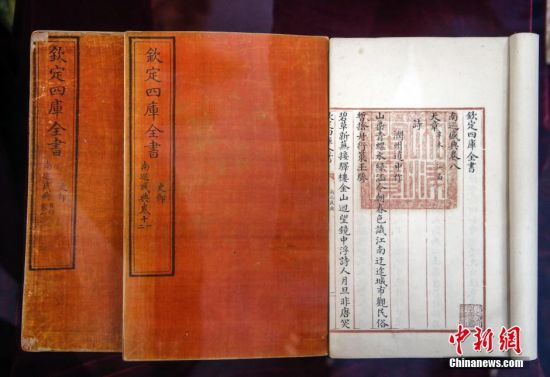 欽定四庫全書
史部
南巡盛典
欽定四庫全書
史部
南巡盛典卷十二
欽定四庫全書
南巡盛典卷八
天章
詩
州道中作
青螺水 今朝春色識江南迂途城市觀民俗
碧草新蕪接驛樓金山迴望鏡中浮詩人月旦非唐突
中新網
Chinanews.com